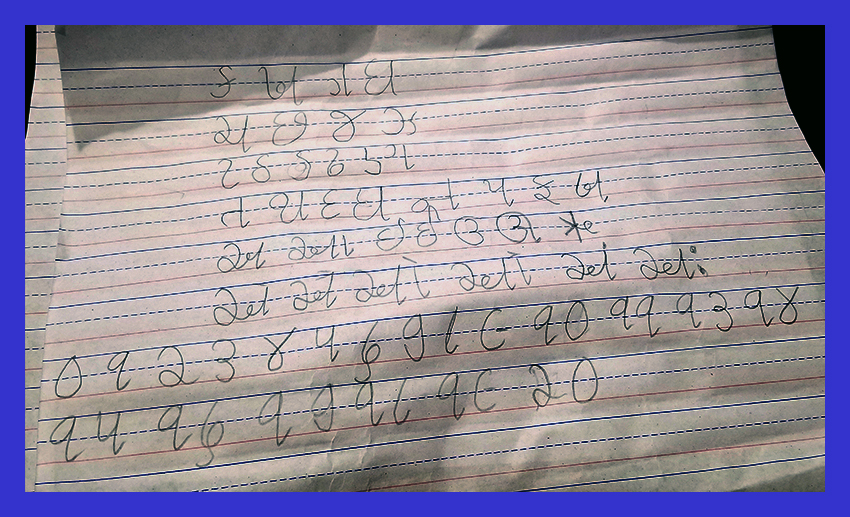 ક ખ ગ ઘ
ચ છ જ ઝ
ટ ઠ ડ ઢ ણ
ત થ દ ધ ન પ ફ બ
અ આ ઇ ઈ ઉ ઊ ઋ
એ ઐ ઓ ઔ અં અઃ
૦ ૧ ૨ ૩ ૪ ૫ ૬ ૭ ૮ ૯ ૧૦ ૧૧ ૧૩ ૧૪
૧૫ ૧૬ ૧૭ ૧૮ ૧૯ ૨૦